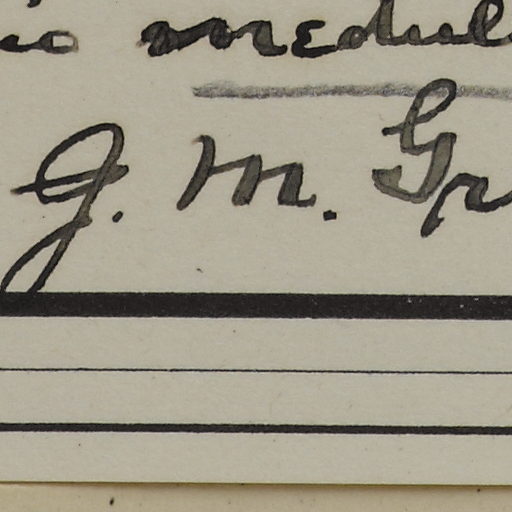 io medul
J. M. Gr